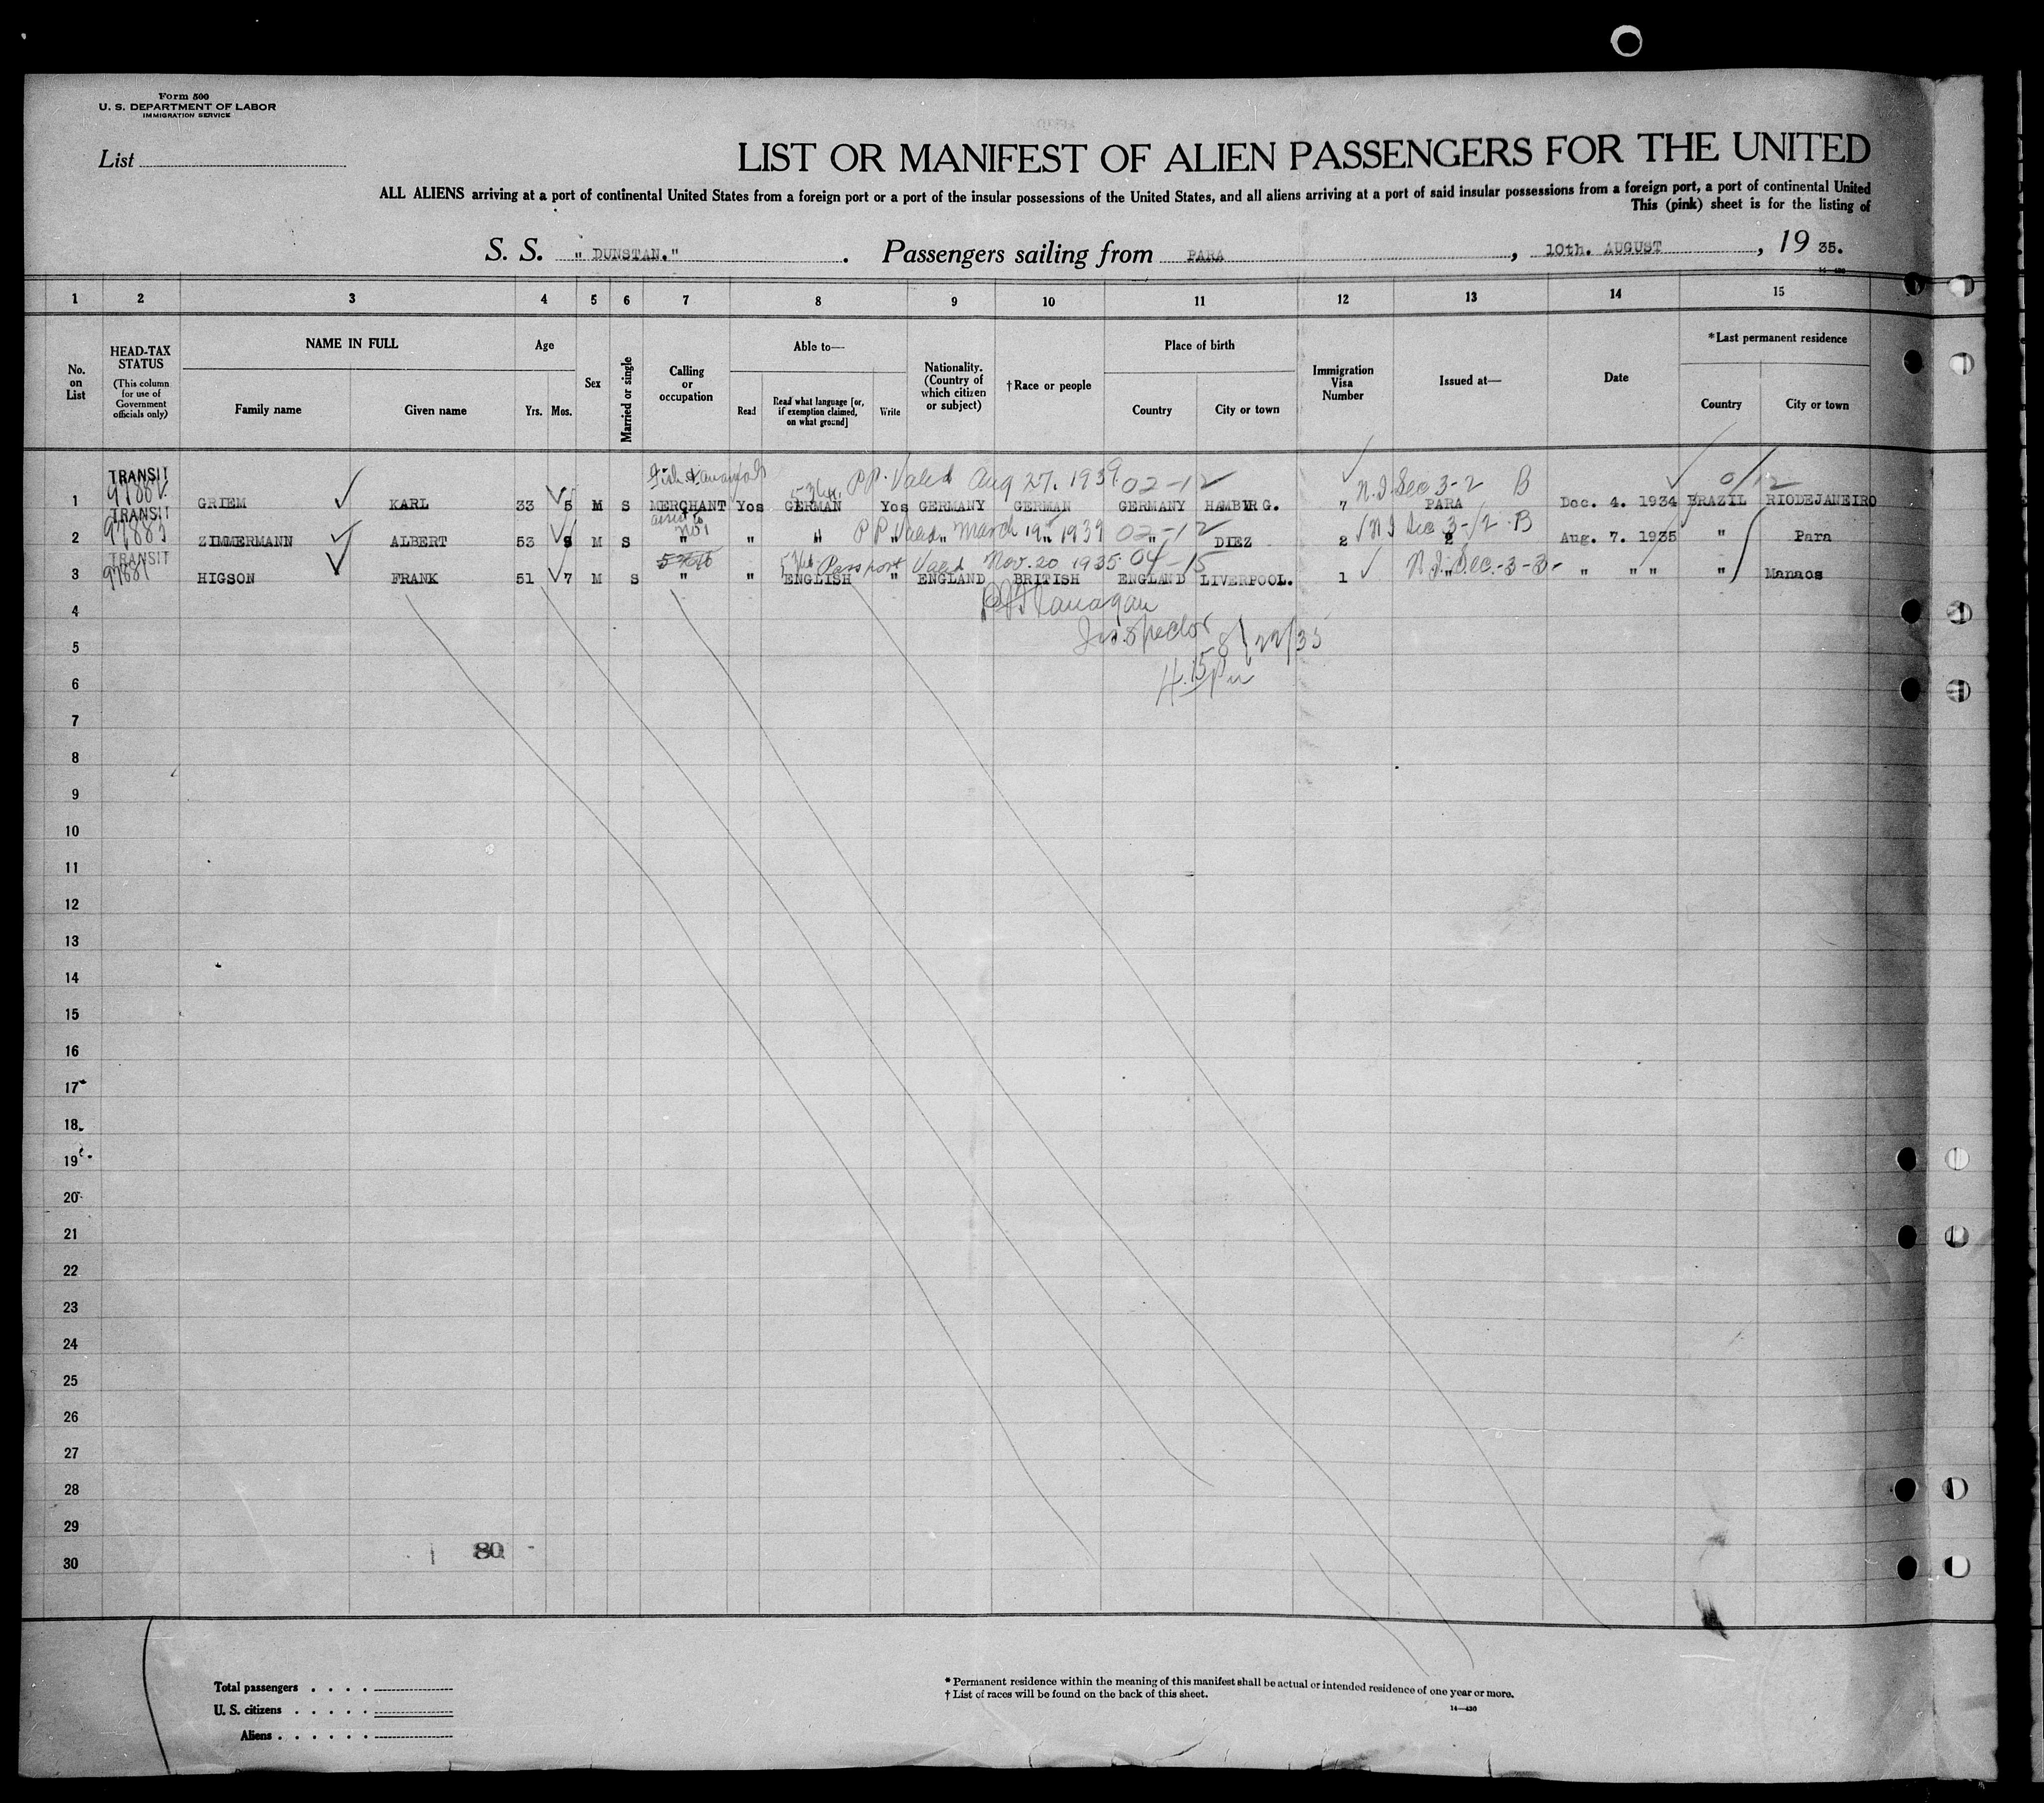 Form 500
U. S. DEPARTMENT OF LABOR
IMMIGRATION SERVICE
List
LIST OR MANIFEST OF ALIEN PASSENGERS FOR THE UNITED
ALL ALIENS arriving at a port of continental United States from a foreign port or a port of the insular possessions of the United States, and all aliens arriving at a port of said insular possessions from a foreign port, a port of continental United
This (pink) sheet is for the listing of
S. S. " DUNSTAN." . Passengers sailing from PARA , 10th. AUGUST , 19 35.
14—430
1 2 3 4 5 6 7 8 9 10 11 12 13 14 15
No. on List
HEAD-TAX STATUS
(This column for use of Government officials only)
NAME IN FULL
Family name Given name
Age
Yrs. Mos.
Sex
Married or single
Calling or occupation
Able to—
Read
Read what language [or, if exemption claimed, on what ground]
Write
Nationality. (Country of which citizen or subject)
†Race or people
Place of birth
Country City or town
Immigration Visa Number
Issued at—
Date
*Last permanent residence
Country City or town
TRANSIT PP. Valed Aug 27. 1939 02-12 N.I Sec 3-2 B 0/12
1 GRIEM KARL 33 5 M S MERCHANT Yes GERMAN Yes GERMANY GERMAN GERMANY HAMBURG. 7 PARA Dec. 4. 1934 BRAZIL RIODEJANEIRO
TRANSIT 97883 PP Valed March 19th 1939 02-12 N I Sec 3-/2 B
2 ZIMMERMANN ALBERT 53 M S " " " " " " " DIEZ 2 Aug. 7. 1935 " Para
TRANSIT 97881 Passport Valed Nov. 20 1935 04-15 N.I. Sec.-3-3-
3 HIGSON FRANK 51 7 M S " " ENGLISH " ENGLAND BRITISH ENGLAND LIVERPOOL. 1 " " " " " Manaos
Flanagan
4
Inspector 8/22/35
5
4.15 Pm
6
7
8
9
10
11
12
13
14
15
16
17
18
19
20
21
22
23
24
25
26
27
28
29
80
30
Total passengers . . . .
U. S. citizens . . . . .
Aliens . . . . . .
* Permanent residence within the meaning of this manifest shall be actual or intended residence of one year or more.
† List of races will be found on the back of this sheet.
14—430